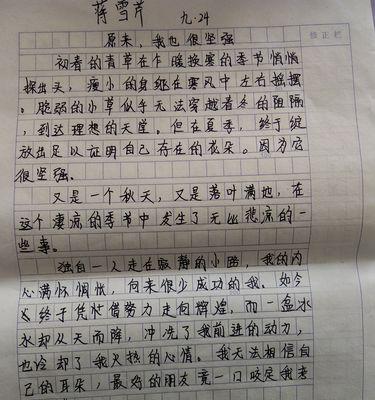 蒋雪芹 九.24
原来,我也很坚强
修正栏
初春的青草在乍暖换寒的季节悄悄
探出头,瘦小的身躯在寒风中左右摇摆
。脆弱的小草似乎无法穿越着冬的阻隔
,到达理想的天堂。但在夏季,终于绽
放出足以证明自己存在的花朵。因为它
很坚强。
又是一个秋天,又是落叶满地,在
这个凄凉的季节中发生了无比悲凉的一
些事。
独自一人走在寂静的小路,我的内
心满怀惆怅,向来很少成功的我。如今
终于凭借努力走向辉煌,而一盆冰
水却从天而降,冲洗了我前进的动力,
也冷却了我火热的心情。我无法相信自
己的耳朵,最好的朋友竟一口咬定我考